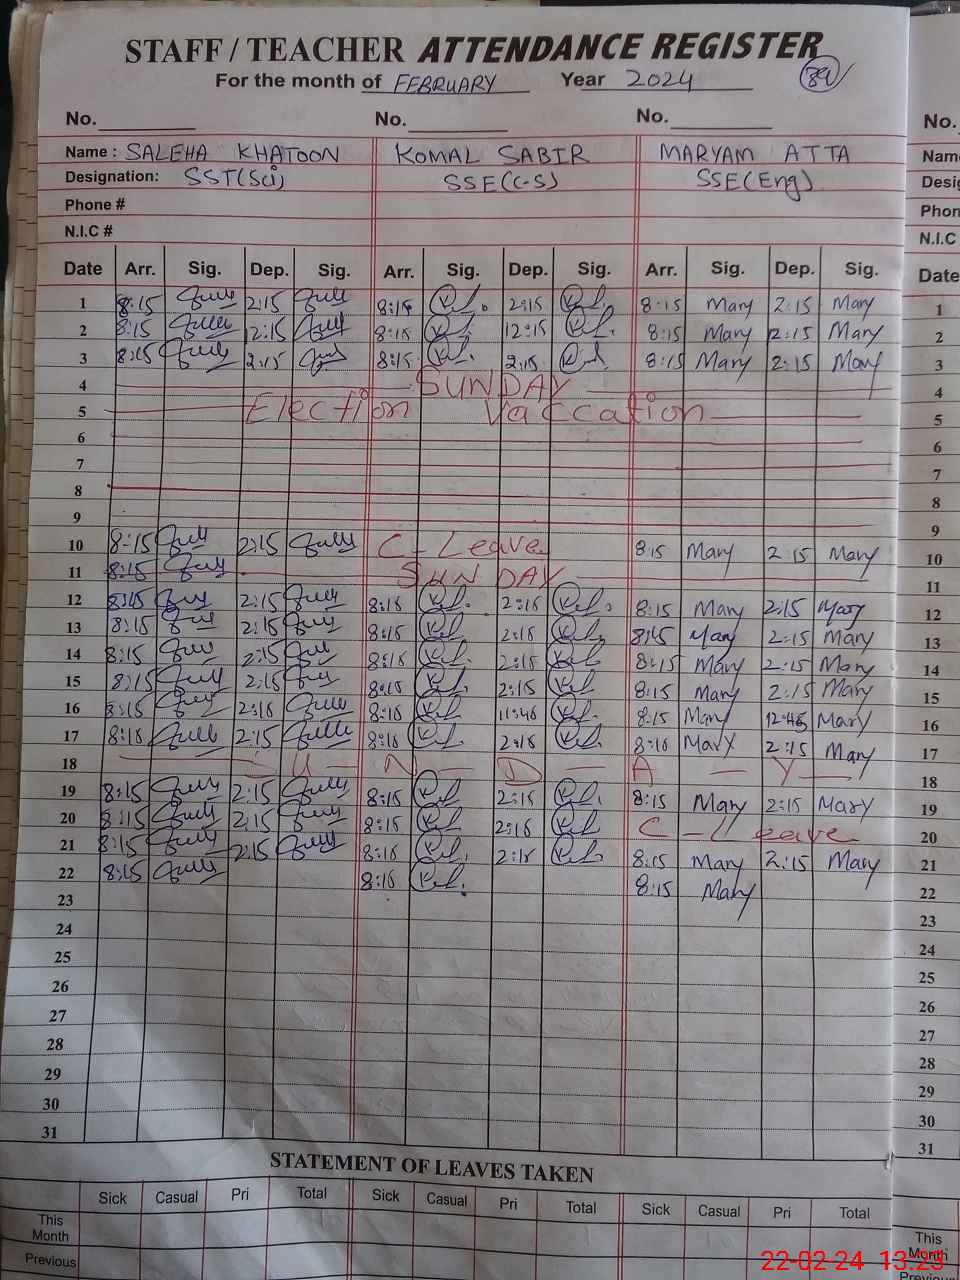 STAFF / TEACHER ATTENDANCE REGISTER
For the month of FEBRUARY Year 2024 89
No. No. No. No.
Name : SALEHA KHATOON KOMAL SABIR MARYAM ATTA Nam
Designation: SST(Sci) SSE(C-S) SSE(Eng) Desig
Phone # Phon
N.I.C # N.I.C
Date Arr. Sig. Dep. Sig. Arr. Sig. Dep. Sig. Arr. Sig. Dep. Sig. Date
1 8:15 2:15 8:15 2:15 8:15 Mary 2:15 Mary 1
2 8:15 12:15 8:15 12:15 8:15 Mary 12:15 Mary 2
3 8:15 2:15 8:15 2:15 8:15 Mary 2:15 Mary 3
4 SUNDAY 4
5 Election Vaccation 5
6 6
7 7
8 8
9 9
10 8:15 2:15 C-Leave 8:15 Mary 2:15 Mary 10
11 8:15 SUNDAY 11
12 8:15 2:15 8:15 2:15 8:15 Mary 2:15 Mary 12
13 8:15 2:15 8:15 2:15 8:15 Mary 2:15 Mary 13
14 8:15 2:15 8:15 2:15 8:15 Mary 2:15 Mary 14
15 8:15 2:15 8:15 2:15 8:15 Mary 2:15 Mary 15
16 8:15 2:15 8:15 11:45 8:15 Mary 12:45 Mary 16
17 8:15 2:15 8:15 2:15 8:15 Mary 2:15 Mary 17
18 S - U - N - D - A - Y 18
19 8:15 2:15 8:15 2:15 8:15 Mary 2:15 Mary 19
20 8:15 2:15 8:15 2:15 C-Leave 20
21 8:15 2:15 8:15 2:15 8:15 Mary 2:15 Mary 21
22 8:15 8:15 8:15 Mary 22
23 23
24 24
25 25
26 26
27 27
28 28
29 29
30 30
31 31
STATEMENT OF LEAVES TAKEN
Sick Casual Pri Total Sick Casual Pri Total Sick Casual Pri Total
This Month This Month
Previous Previous
22-02-24 13:25